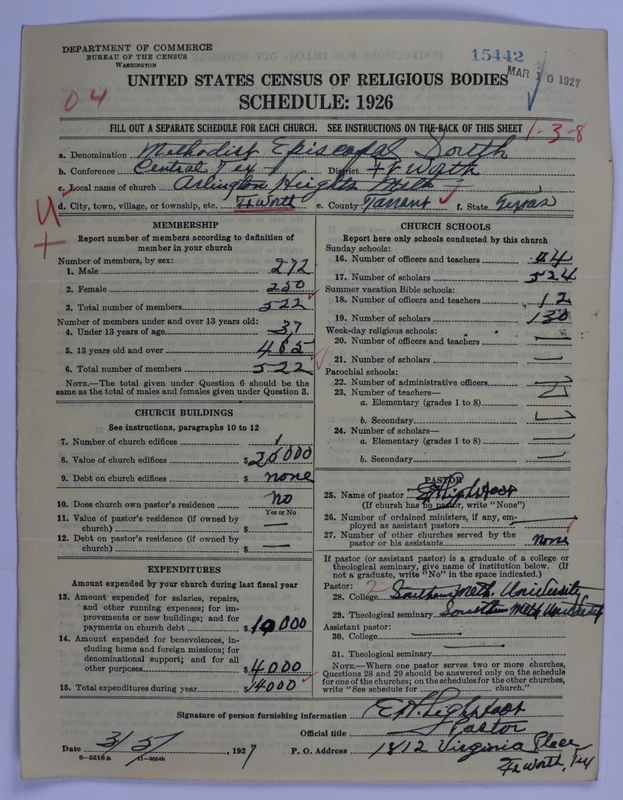 DEPARTMENT OF COMMERCE
BUREAU OF THE CENSUS
WASHINGTON
15442
MAR 10 1927
UNITED STATES CENSUS OF RELIGIOUS BODIES
SCHEDULE: 1926
04
FILL OUT A SEPARATE SCHEDULE FOR EACH CHURCH. SEE INSTRUCTIONS ON THE BACK OF THIS SHEET
1-3-8
a. Denomination Methodist Episcopal South
b. Conference Central Tex District Ft Worth
c. Local name of church Arlington Heights Meth
d. City, town, village, or township, etc. Ft Worth e. County Tarrant f. State Texas
MEMBERSHIP
Report number of members according to definition of
member in your church
Number of members, by sex:
1. Male 272
2. Female 250
3. Total number of members 522
Number of members under and over 13 years old:
4. Under 13 years of age 37
5. 13 years old and over 485
6. Total number of members 522
NOTE.—The total given under Question 6 should be the
same as the total of males and females given under Question 3.
CHURCH BUILDINGS
See instructions, paragraphs 10 to 12
7. Number of church edifices 1
8. Value of church edifices $20000
9. Debt on church edifices $none
10. Does church own pastor's residence no
Yes or No
11. Value of pastor's residence (if owned by
church) $ —
12. Debt on pastor's residence (if owned by
church) $ —
EXPENDITURES
Amount expended by your church during last fiscal year
13. Amount expended for salaries, repairs,
and other running expenses; for im-
provements or new buildings; and for
payments on church debt $10000
14. Amount expended for benevolences, in-
cluding home and foreign missions; for
denominational support; and for all
other purposes $4000
15. Total expenditures during year $14000
CHURCH SCHOOLS
Report here only schools conducted by this church
Sunday schools:
16. Number of officers and teachers 44
17. Number of scholars 524
Summer vacation Bible schools:
18. Number of officers and teachers 12
19. Number of scholars 130
Week-day religious schools:
20. Number of officers and teachers —
21. Number of scholars —
Parochial schools:
22. Number of administrative officers
23. Number of teachers—
a. Elementary (grades 1 to 8)
b. Secondary
24. Number of scholars—
a. Elementary (grades 1 to 8) —
b. Secondary —
PASTOR
25. Name of pastor E H Lightfoot
(If church has no pastor, write "None")
26. Number of ordained ministers, if any, em-
ployed as assistant pastors —
27. Number of other churches served by the
pastor or his assistants none
If pastor (or assistant pastor) is a graduate of a college or
theological seminary, give name of institution below. (If
not a graduate, write "No" in the space indicated.)
Pastor:
28. College Southern Meth. University
29. Theological seminary Southern Meth University
Assistant pastor:
30. College —
31. Theological seminary —
NOTE.—Where one pastor serves two or more churches,
Questions 28 and 29 should be answered only on the schedule
for one of the churches; on the schedules for the other churches,
write "See schedule for ........ church."
Signature of person furnishing information E.H. Lightfoot
Official title Pastor
Date 3/5/, 1927 P. O. Address 1812 Virginia Place
Ft Worth, Tex
8—5518a 11—9554b